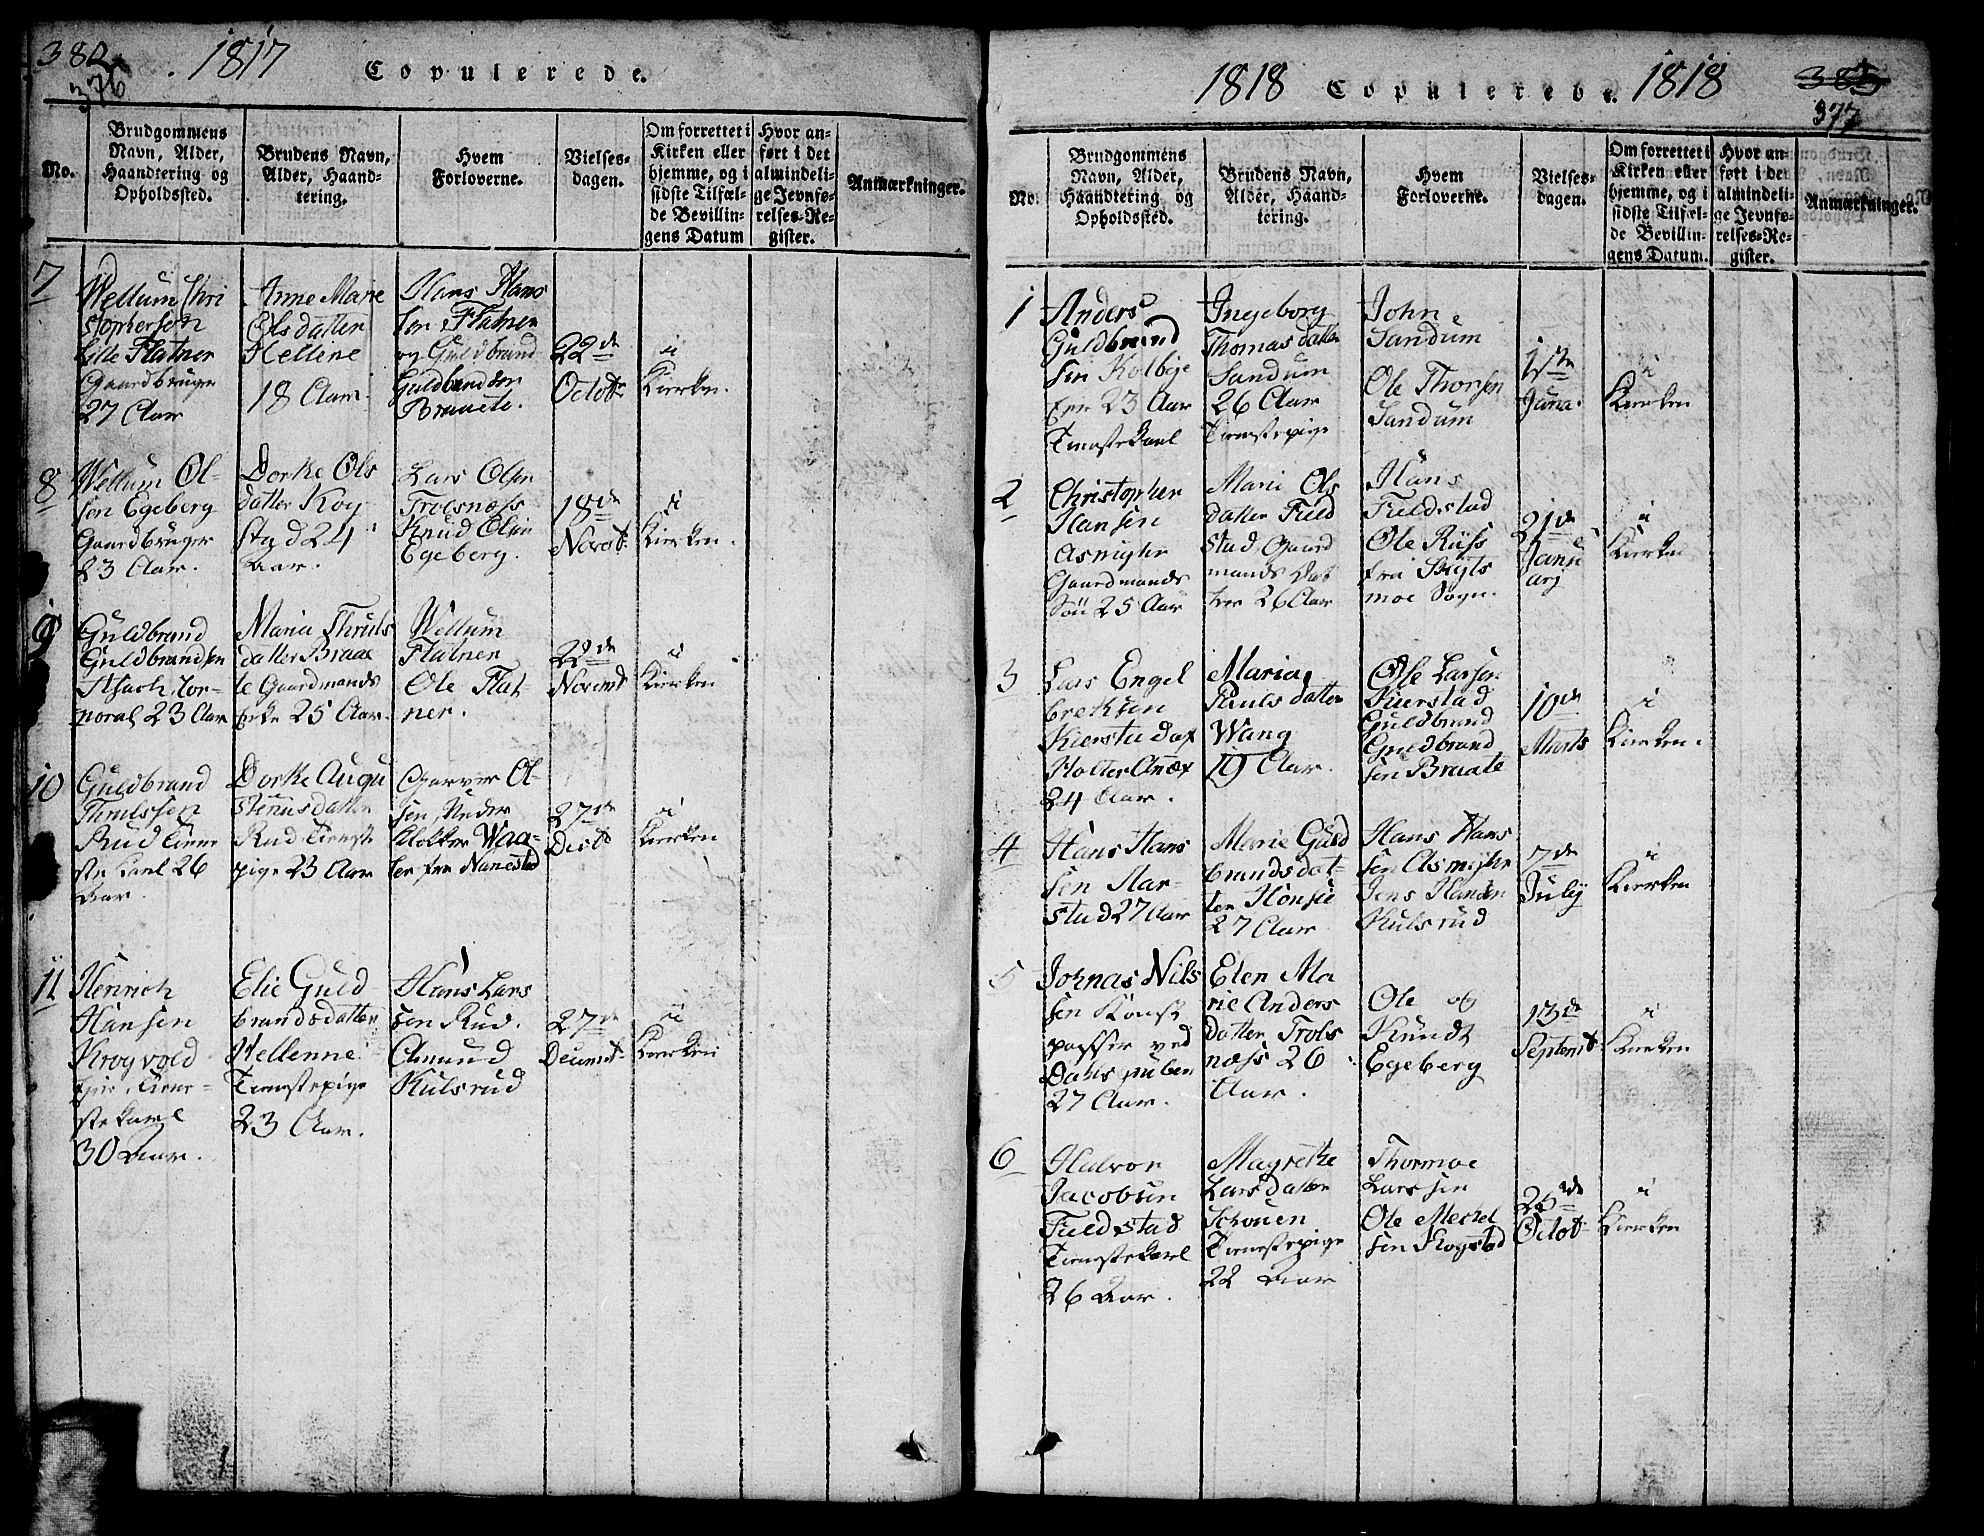 382
376
1817
Copulerede.
No.
Brudgommens
Navn, Alder,
Haandtering og
Opholdssted.
Brudens Navn,
Alder, Haand-
tering.
Hvem
Forloverne.
Vielses-
dagen.
Om forrettet i
Kirken eller
hjemme, og i
sidste Tilfæl-
de Bevillin-
gens Datum
Hvor an-
ført i det
almindeli-
ge Jevnfø-
relses-Re-
gister.
Anmærkninger.
7
Wellum Chri
stophersen
Lille Flatner
Gaardbruger
27 Aar
Anne Marie
Olsdatter
Hellene
18 Aar
Hans Hans
sen Flatner
og Guldbrand
Guldbrandsen
Braate.
22de
Octobr
i
Kierken.
8
Wellum Ol-
sen Egeberg
Gaardbruger
23 Aar.
Dorthe Ols
datter Kog
stad 24
Aar.
Lars Olsen
Troesnæss
Knud Olsen
Egeberg.
18de
Novbr
i
Kierken.
9
Guldbrand
Guldbrandsen
23 Aar
Maria Thruls
datter Braa
te Gaardmands
25 Aar
Wellum
Flatner
Ole Flat-
ner.
22de
Novembr
i
Kierken
10
Guldbrand
Thrulssen
Rud Tiene
ste Karl 26
Aar.
Dorthe Augu
stinusdatter
Rud Tieneste
pige 23 Aar
Ol-
sen Neder
fra Nanestad
27de
Decbr
i
Kierken
11
Henrich
Hansen
Krogvold
Eier Tiene-
stekarl
30 Aar.
Elie Guld
brandsdatter
Hellenne
Tienestepige
23 Aar.
Hans Lars
sen Rud.
Amund
Kulsrud
27de
Decembr
i
Kierken
1818
Copulerede.
1818
383
377
No.
Brudgommens
Navn, Alder,
Haandtering og
Opholdssted.
Brudens Navn,
Alder, Haand-
tering.
Hvem
Forloverne.
Vielses-
dagen.
Om forrettet i
Kirken eller
hjemme, og i
sidste Tilfæl-
de Bevillin-
gens Datum.
Hvor an-
ført i det
almindeli-
ge Jevnfø-
relses-Re-
gister.
Anmærkninger.
1
Anders
Guldbrand
sen Kolbye
Eier 23 Aar
Tienestekarl
Ingeborg
Thomasdatter
Sandum
26 Aar
Tienestepige
John
Sandum
Ole Thorsen
Sandum
1ste
Janu.
i
Kierken
2
Christopher
Hansen
Asmyhr
Gaardmands
Søn 25 Aar
Marie Ols
datter Field
stad Gaard
mands Dat
ter 26 Aar
Hans
Fieldstad
Ole Riiss
fra Skyts
moe Sogn.
21de
Janu
arj
i
Kierken
3
Lars Engel
brektsen
Kierstad af
Holter Anex
24 Aar.
Maria
Pauls datter
Wang
19 Aar.
Ole Larsen
Kierstad
Guldbrand
Guldbrand
sen Braate
10de
Marts
i
Kierken.
4
Hans Hans
sen Aar-
stad 27 Aar
Marie Guld
brandsdat-
ter Hønsie
27 Aar
Hans Hans
sen Asmyhr
Jens Hansen
Kulsrud
7de
July
i
Kierken
5
Johnas Nils
sen
ved
27 Aar.
Elen Ma
rie Anders
datter Trols
næss 26
Aar.
Ole og
Knudt
Egeberg
13de
Septembr
i
Kierken
6
Halvor
Jacobsen
Fieldstad
Tienestekarl
26 Aar.
Magrethe
Larsdatter
Schouen
Tienestepige
22 Aar
Thormoe
Larssen
Ole Mechel
sen Kogstad
25de
Octobr
i
Kierken